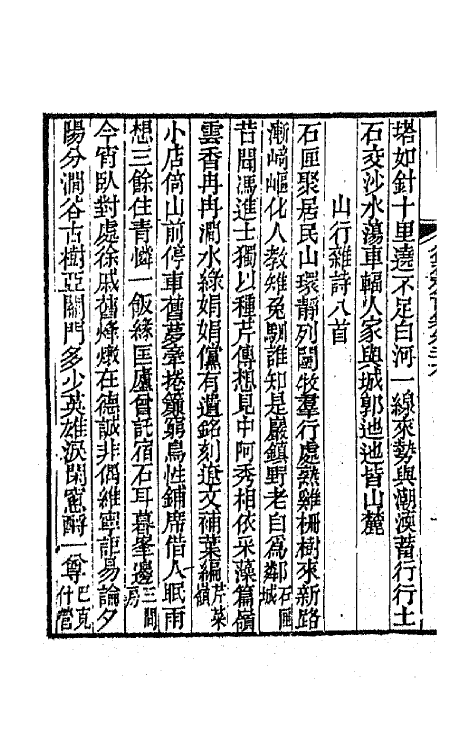 塔如針十里遶不足白河一線來勢與潮漢蓄行行土
石交沙水蕩車輻人家與城郭迤迤皆山麓
山行雜詩八首
石匣聚居民山環靜列闤牧羣行處熟雞柵樹來新路
漸崎嶇化人教雉兔馴誰知是巖鎮野老自爲鄰石匣城
昔聞馮進士獨以種芹傳想見中阿秀相依采藻篇嶺
雲香冉冉澗水綠娟娟儻有遺銘刻遊文補葉編芹菜嶺
小店倚山前停車舊夢牽捲簾窮鳥性鋪席借人眠雨
想三餘住青憐一飯緣匡廬曾託宿石耳暮峯邊三間房
今宵臥對處徐戚舊烽燉在德誠非偶維寧詎易論夕
陽分澗谷古樹亞關門多少英雄淚閑窻酹一尊巴克什營